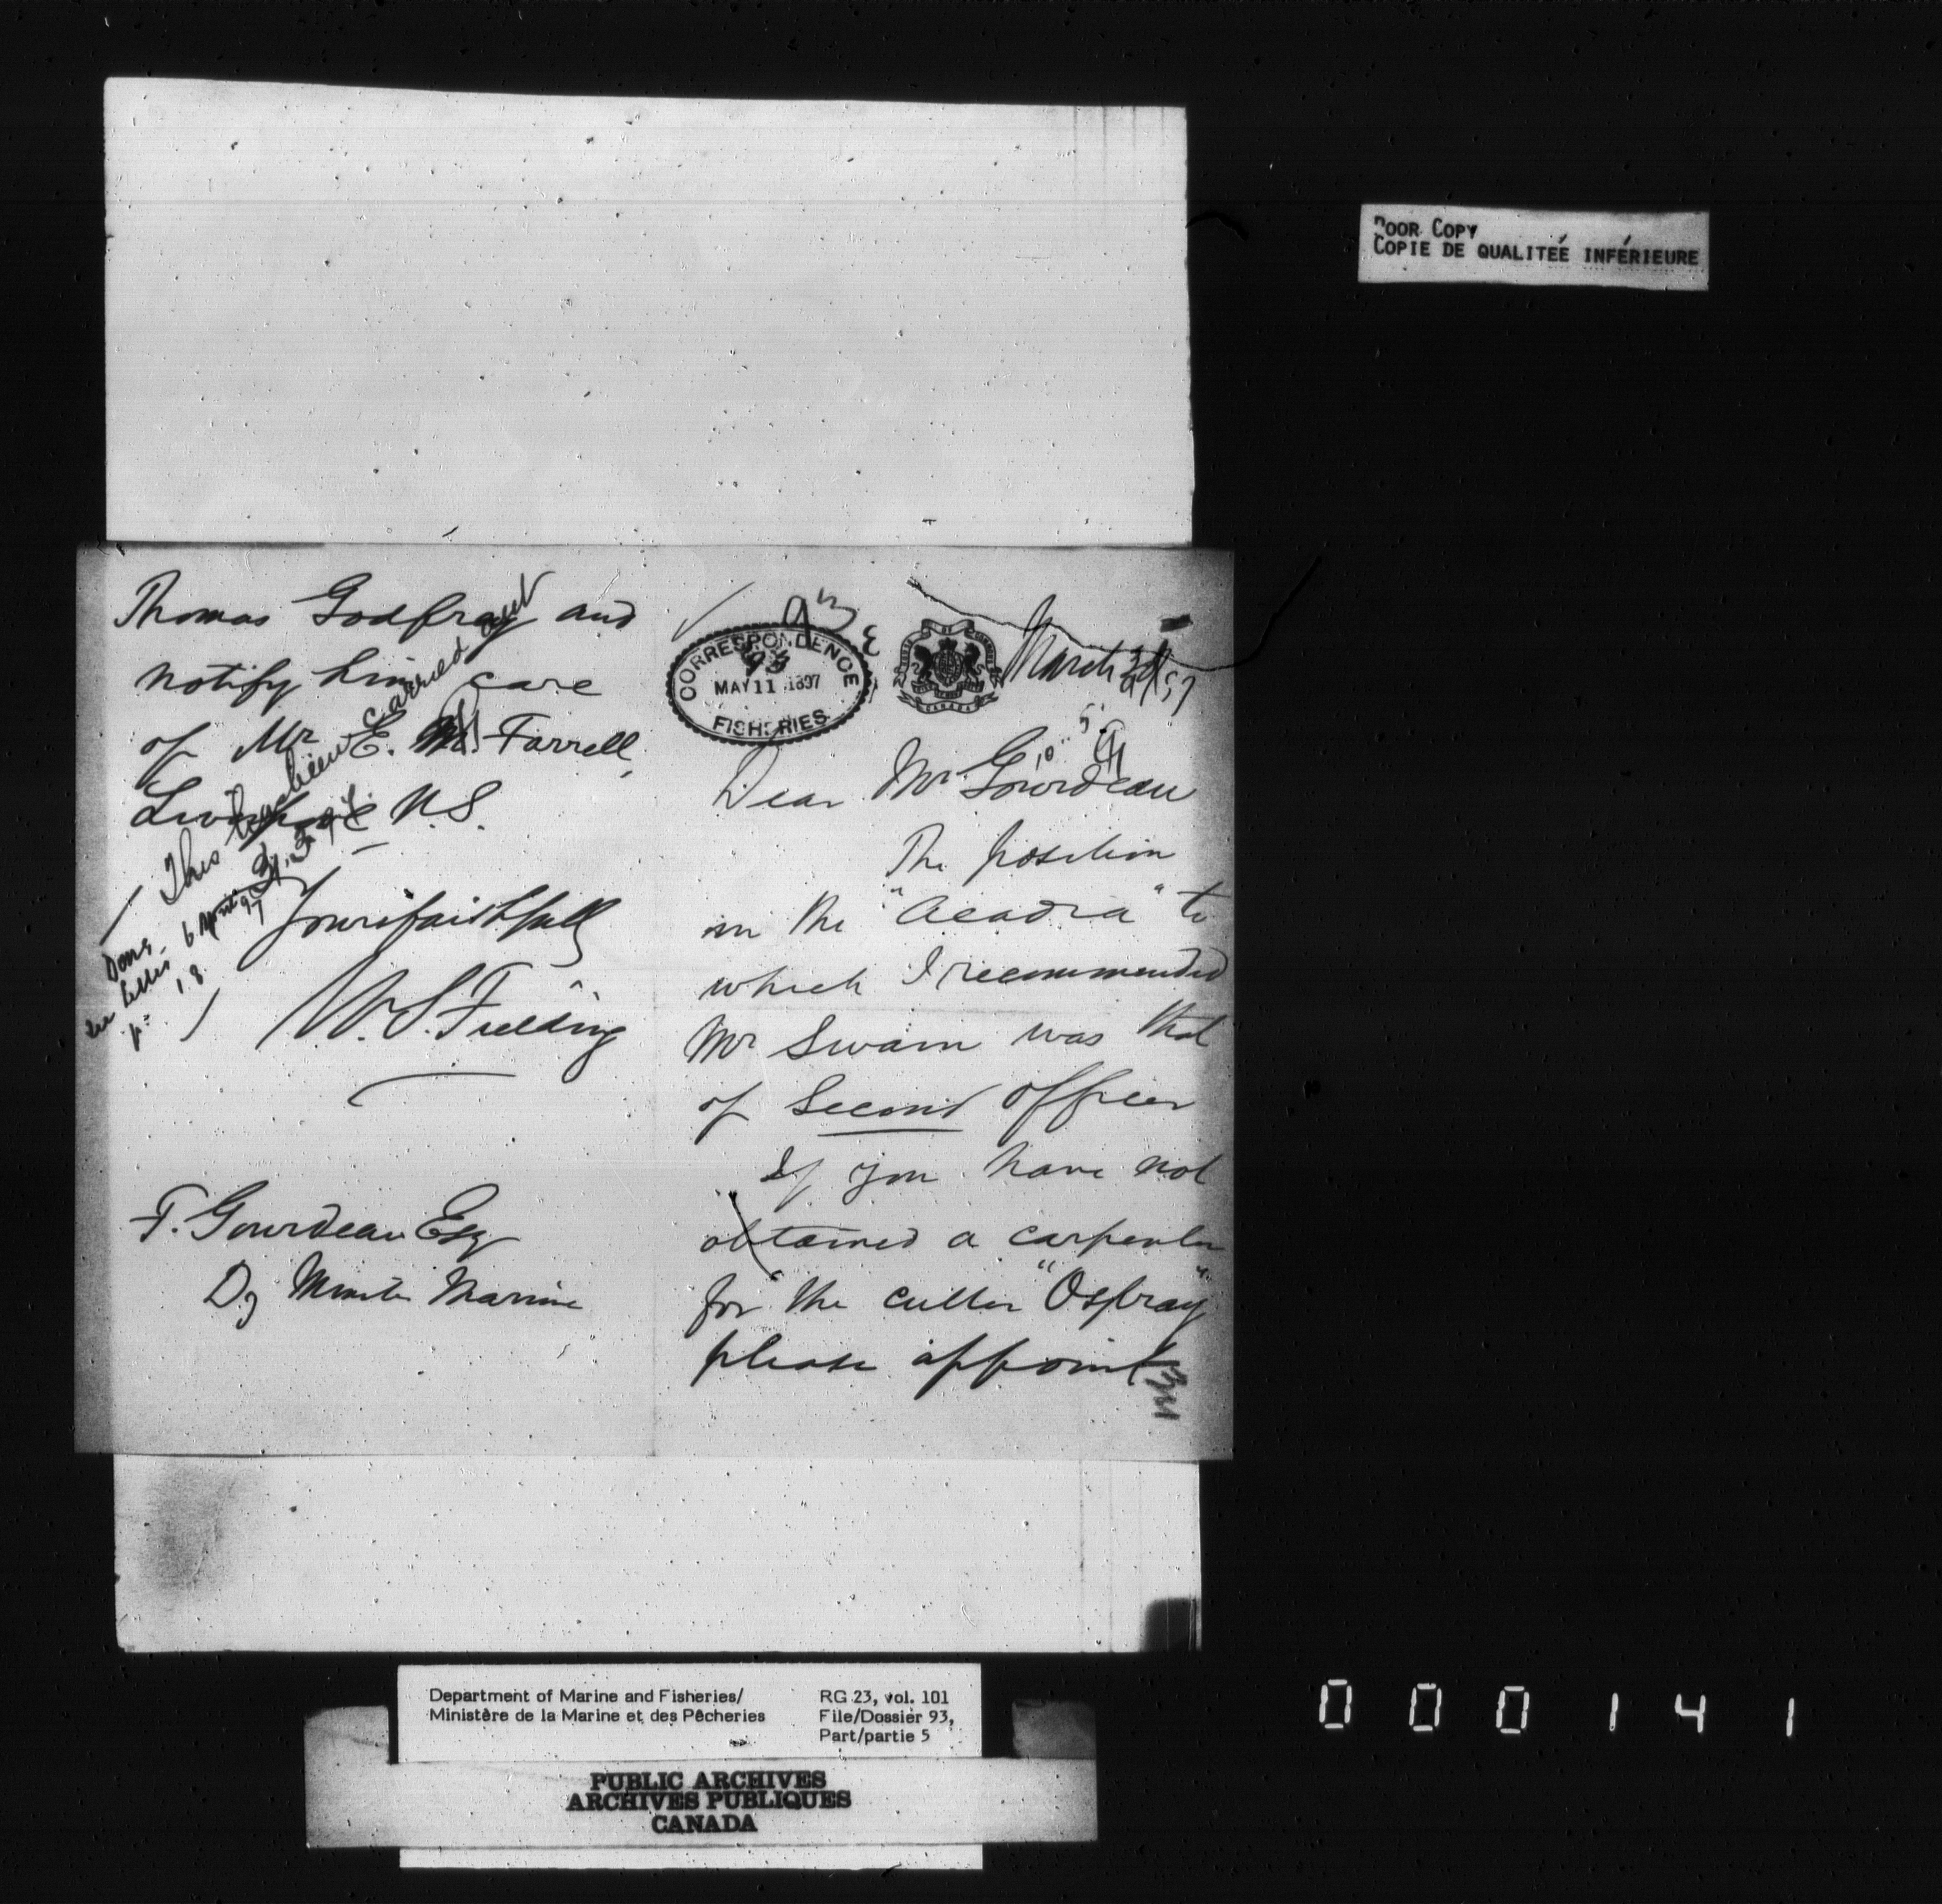 POOR COPY
COPIE DE QUALITEÉ INFÉRIEURE
93
CORRESPONDENCE
93
MAY 11 1897
FISHERIES
CANADA
March 97
Dear Mr Gourdeau
The position
in the "Acadia" to
which I recommended
Mr Swain was that
of Second officer
If you have not
obtained a carpenter
for the cutter "Ospray"
please appoint
Thomas Godfray and
notify him care
of Mr E. M. Farrell,
Liverpool N.S.
Yours faithfully
W. S. Fielding
F. Gourdeau Esq
Dy Minster Marine
This has been carried out
Done 6 April 97
see letter
p. 18
Department of Marine and Fisheries/
Ministère de la Marine et des Pêcheries
RG 23, vol. 101
File/Dossier 93,
Part/partie 5
PUBLIC ARCHIVES
ARCHIVES PUBLIQUES
CANADA
000141